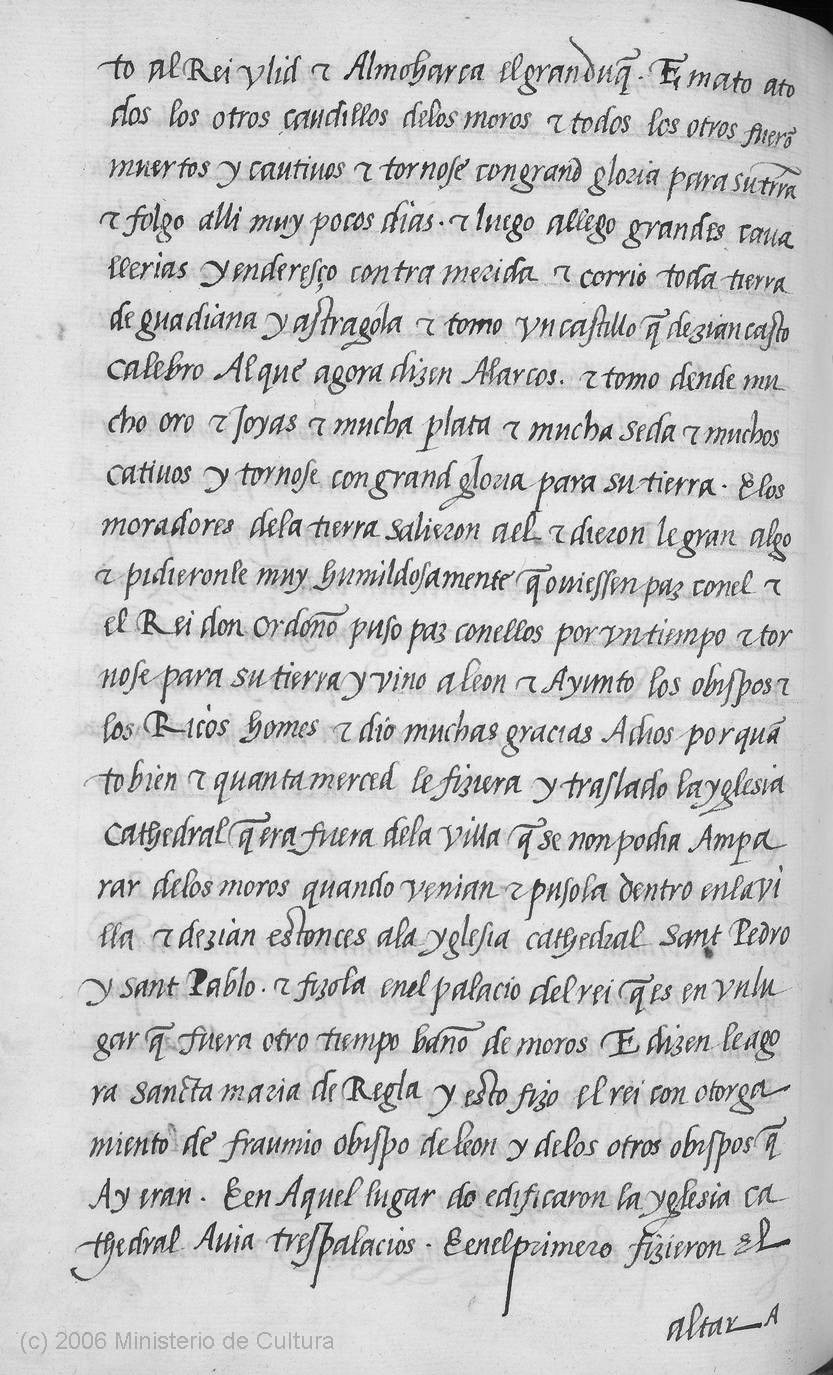 to al Rei vlid τ Almoharca el gran duq̃. E mato ato
dos los otros caudillos delos moros τ todos los otros fuerõ
muertos y cautiuos τ tornose congrand gloria para su trr̃a
τ folgo alli muy pocos dias. τ luego allego grandes caua
llerias y enderesço contra merida τ corrio toda tierra
de guadiana y astragola τ tomo vn castillo q̃ dezian casto
calebro Al que agora dizen Alarcos. τ tomo dende mu
cho oro τ Joyas τ mucha plata τ mucha seda τ muchos
catiuos y tornose congrand gloria para su tierra. E los
moradores dela tierra salieron a el τ dieron le gran algo
τ pidieronle muy humildosamente q̃ ouiessen paz conel τ
el Rei don ordoño puso paz conellos por vn tiempo τ tor
nose para su tierra y vino a leon τ Ayunto los obispos τ
los Ricos homes τ dio muchas gracias A dios por quã
to bien τ quanta merced le fiziera y traslado la yglesia
Cathedral q̃ era fuera dela villa q̃ se non podia Ampa
rar delos moros quando venian τ pusola dentro en la vi
lla τ dezian estonces ala yglesia cathedral Sant Pedro
y Sant Pablo. τ fizola enel palacio del rei q̃ es en vn lu
gar q̃ fuera otro tiempo baño de moros E dizen le ago
ra Sancta maria de Regla y esto fizo el rei con otorga
miento de fraumio obispo de leon y delos otros obispos q̃
Ay eran. E en Aquel lugar do edificaron la yglesia ca
thedral Auia tres palacios. E enel primero fizieron el
altar A
(c) 2006 Ministerio de Cultura